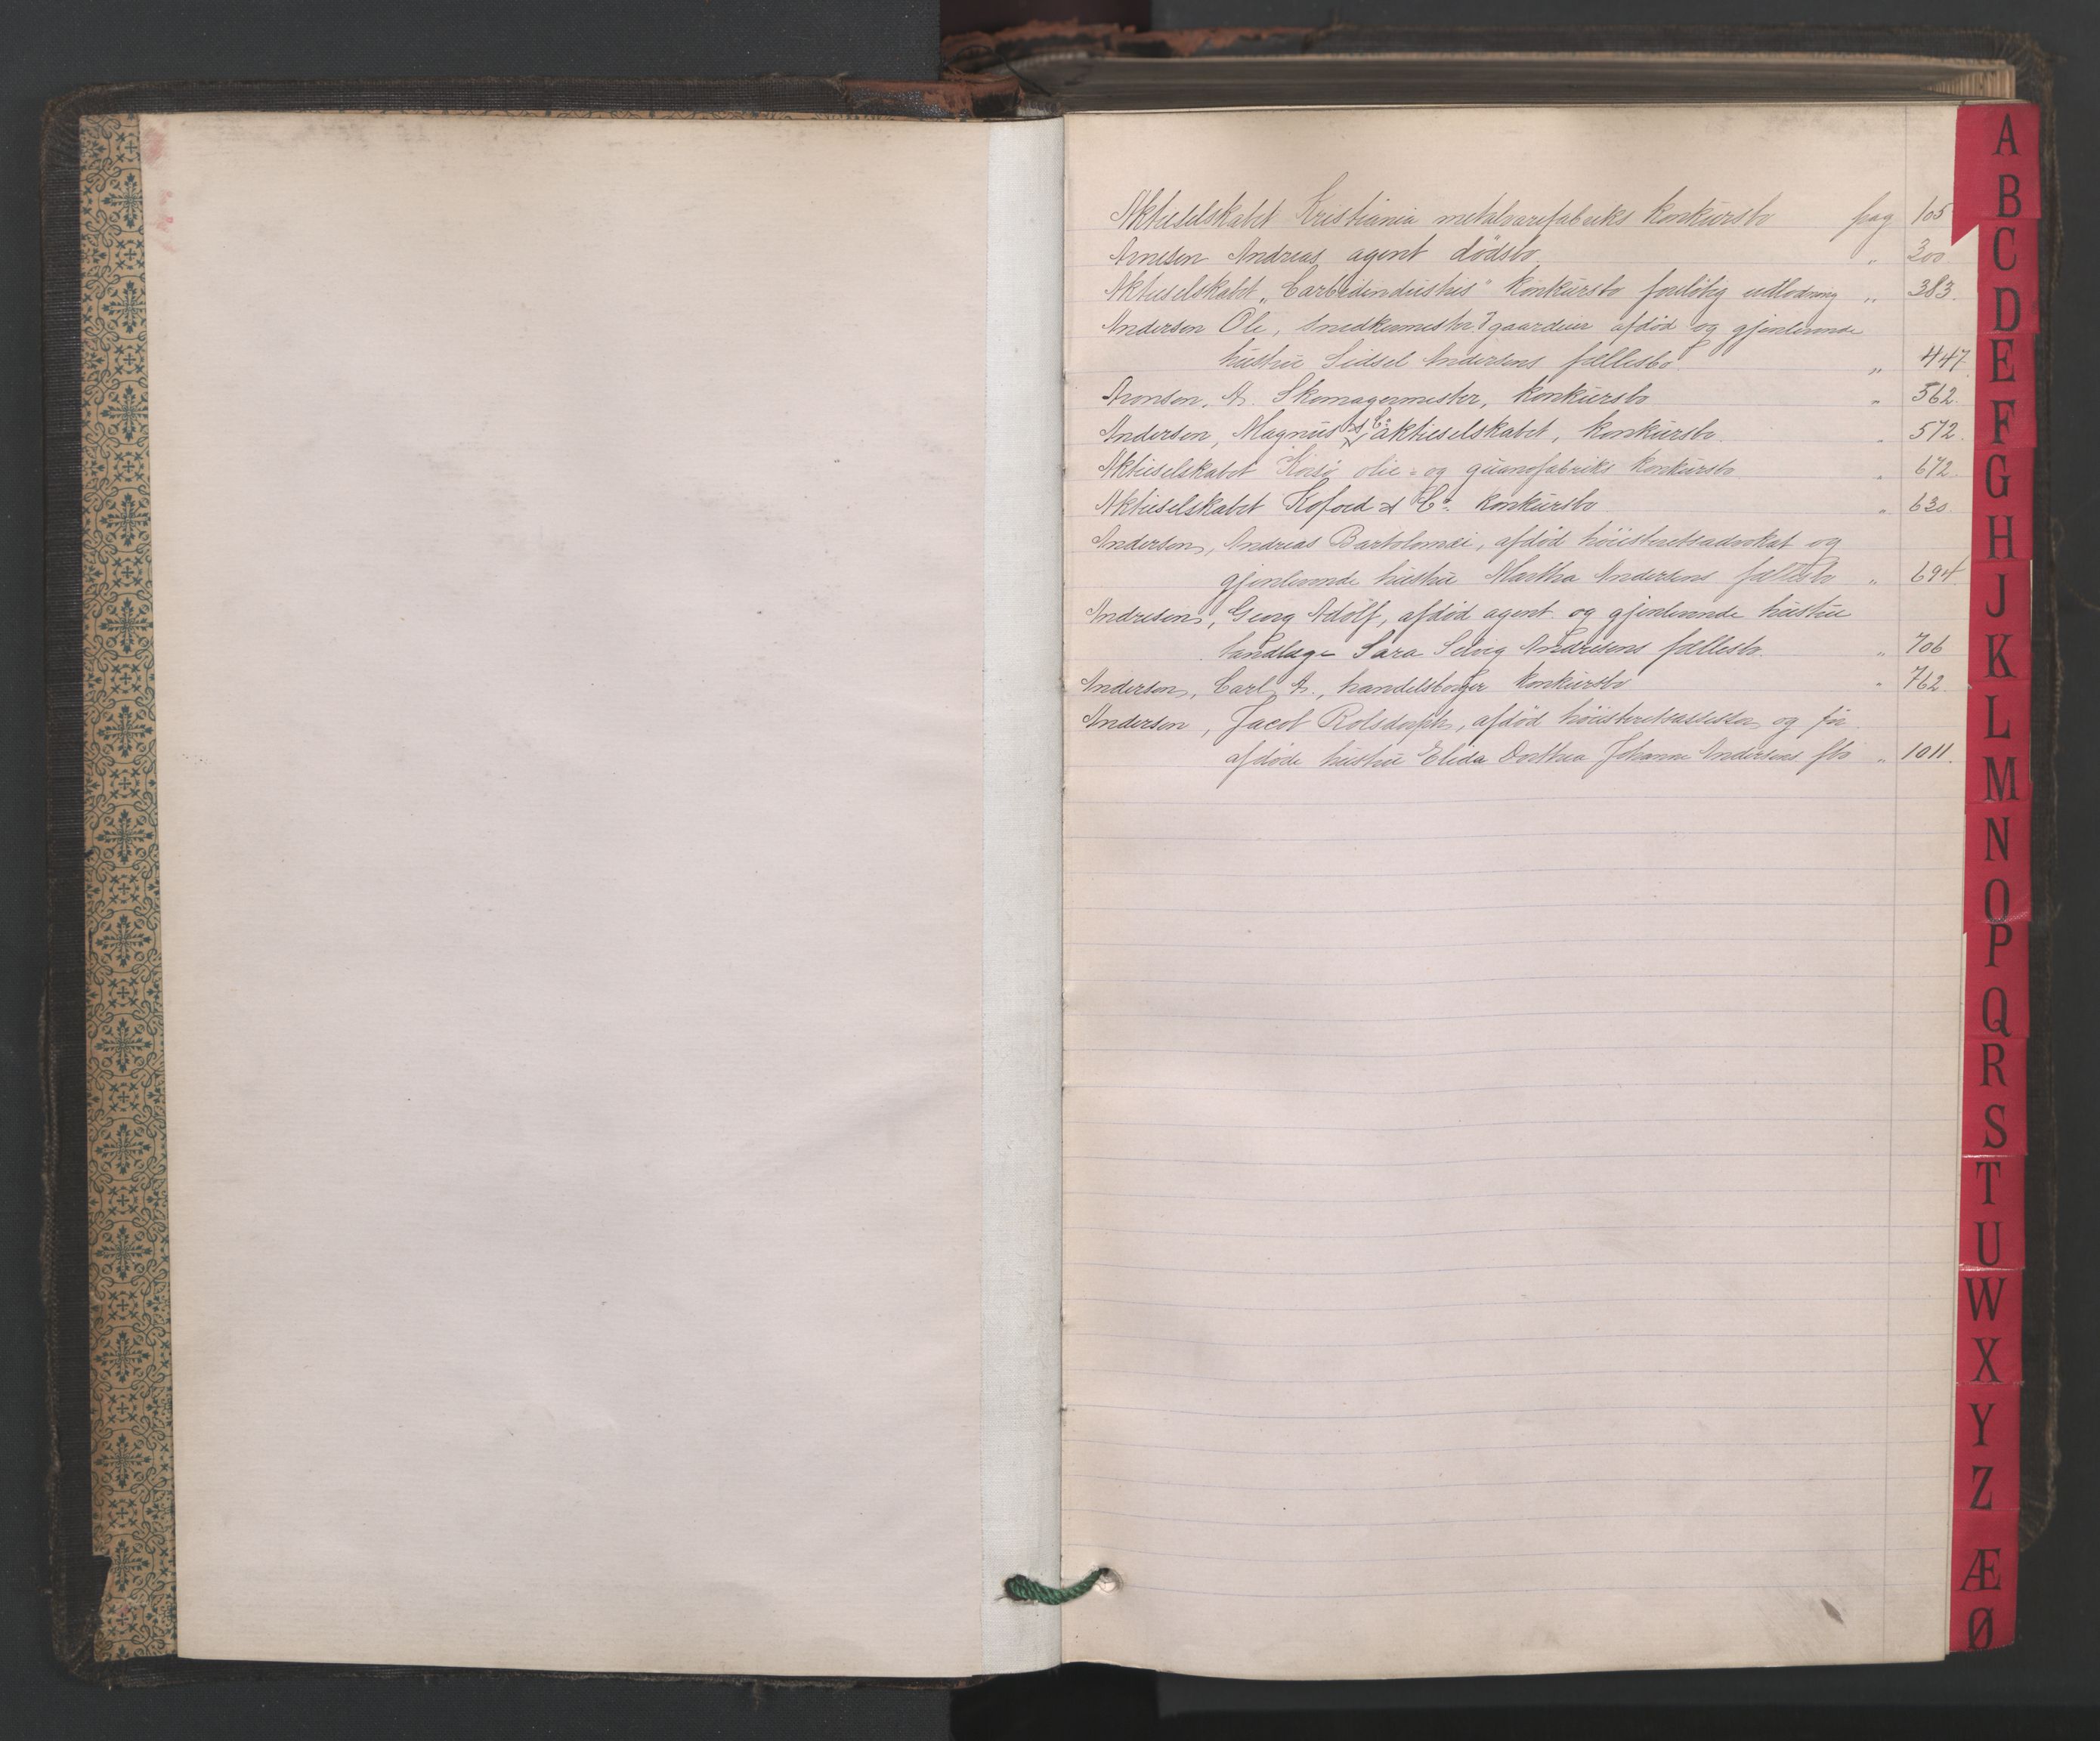 Aktieselskabet Kristiania metalvarefabriks konkursbo pag 105
Arnesen Andreas agent dödsbo " 300
Aktieselskabet „Carbidindustris" konkursbo foreløbig udlodning " 383.
Andersen Ole, snedkermester & gaardeier afdød og gjenlevende
hustru Sidsel Andersens fællesbo " 447.
Aronsen, A. Skomagermester, konkursbo " 562.
Andersen, Magnus & Co aktieselskabet, konkursbo " 572.
Aktieselskabet olie- og guanofabriks konkursbo " 672.
Aktieselskabet Kofoed & Co. konkursbo " 630.
Andersen, Andreas Bartolomæi, afdød höiesteretsadvokat og
gjenlevende hustru Martha Andersens fællesbo " 694
Andresen, Georg Adolf, afdød agent og gjenlevende hustru
tandlæge Sara Andresens fællesbo. " 706
Andersen, Carl A., handelsborger konkursbo " 762.
Andersen, Jacob Rolsdorph, afdød höiesteretsassessor og før
afdøde hustru Elida Dorthea Johanne Andersens fbo " 1011.
A
B
C
D
E
F
G
H
J
K
L
M
N
O
P
Q
R
S
T
U
W
X
Y
Z
Æ
Ø